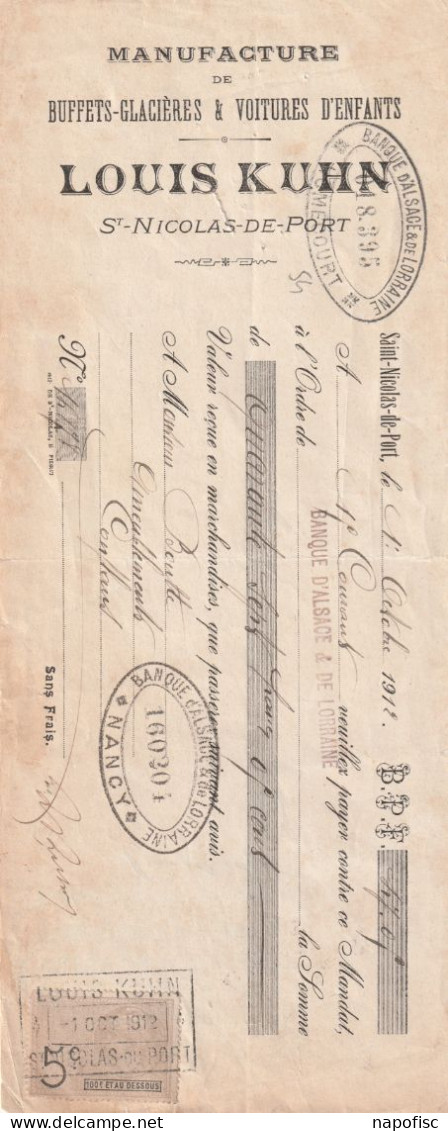 MANUFACTURE
DE
BUFFETS-GLACIÈRES & VOITURES D'ENFANTS
LOUIS KUHN
ST-NICOLAS-DE-PORT
BANQUE D'ALSACE & DE LORRAINE
018.395
54
Saint-Nicolas-de-Port, le 1r Octobre 1912. B.P.F. 47.05
A fin Courant veuillez payer contre ce Mandat,
à l'Ordre de BANQUE D'ALSACE & DE LORRAINE la Somme
de Quarante sept francs 05 cent
Valeur reçue en marchandises, que passerez suivant avis.
A Monsieur
Ameublements
Conflans
No
BANQUE D'ALSACE & de LORRAINE
160204
NANCY
Sans Frais.
LOUIS KUHN
-1 OCT 1912
ST NICOLAS-DU-PORT
5c
100F ET AU DESSOUS
napofisc